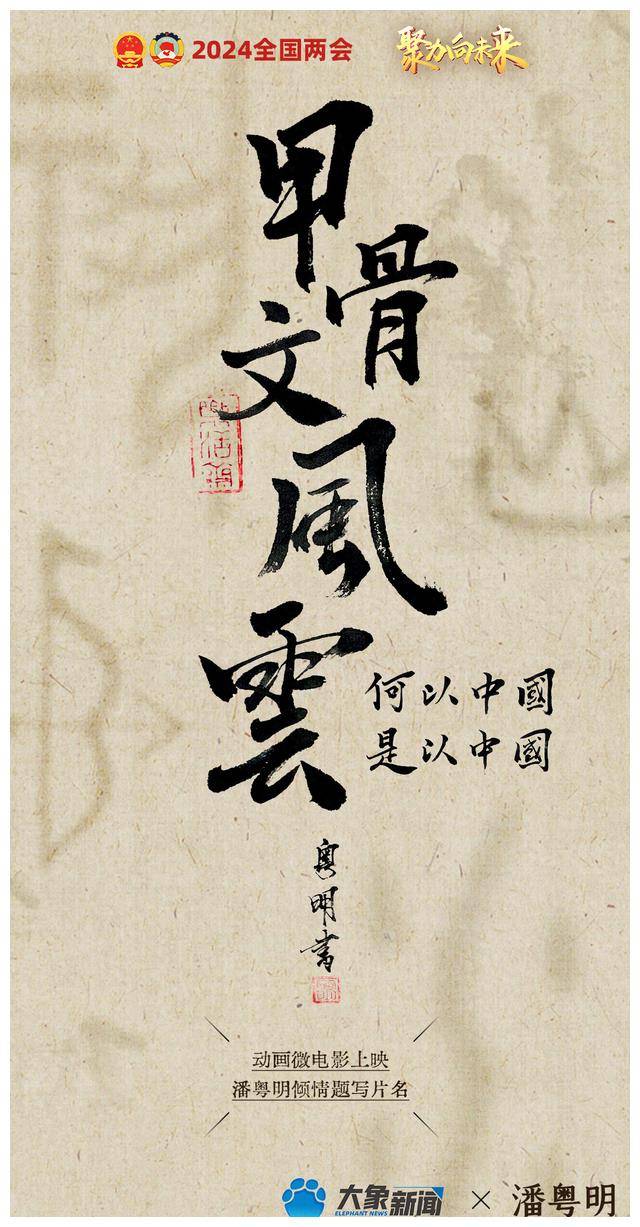 2024全国两会
聚力向未来
甲骨文風雲
何以中國
是以中國
粤明書
动画微电影上映
潘粤明倾情题写片名
大象新闻
ELEPHANT NEWS
×
潘粤明